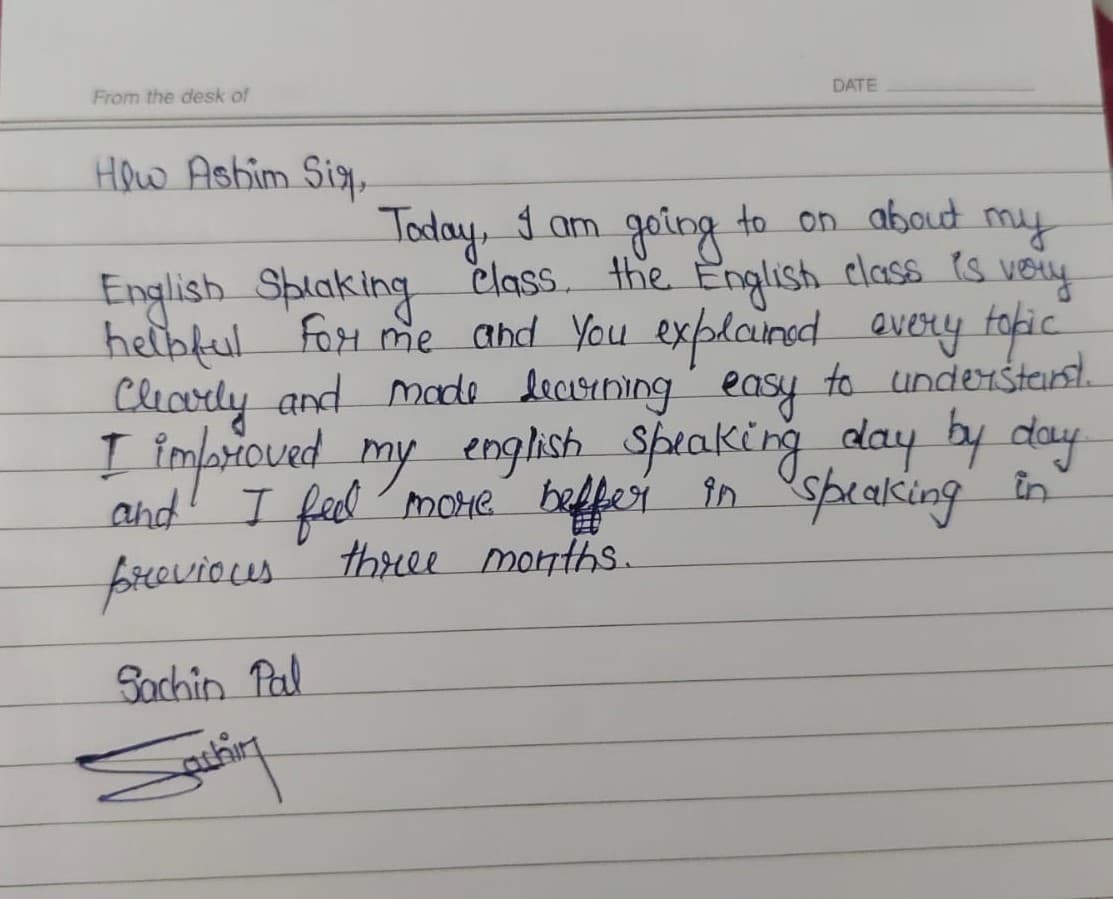 From the desk of
DATE
How Ashim Sir,
Today, I am going to on about my
English Speaking Class. the English class is very
helpful For me and You explained every topic
Clearly and made learning easy to understand.
I improved my english speaking day by day
and I feel more better in speaking in
previous three months.
Sachin Pal
Sachin